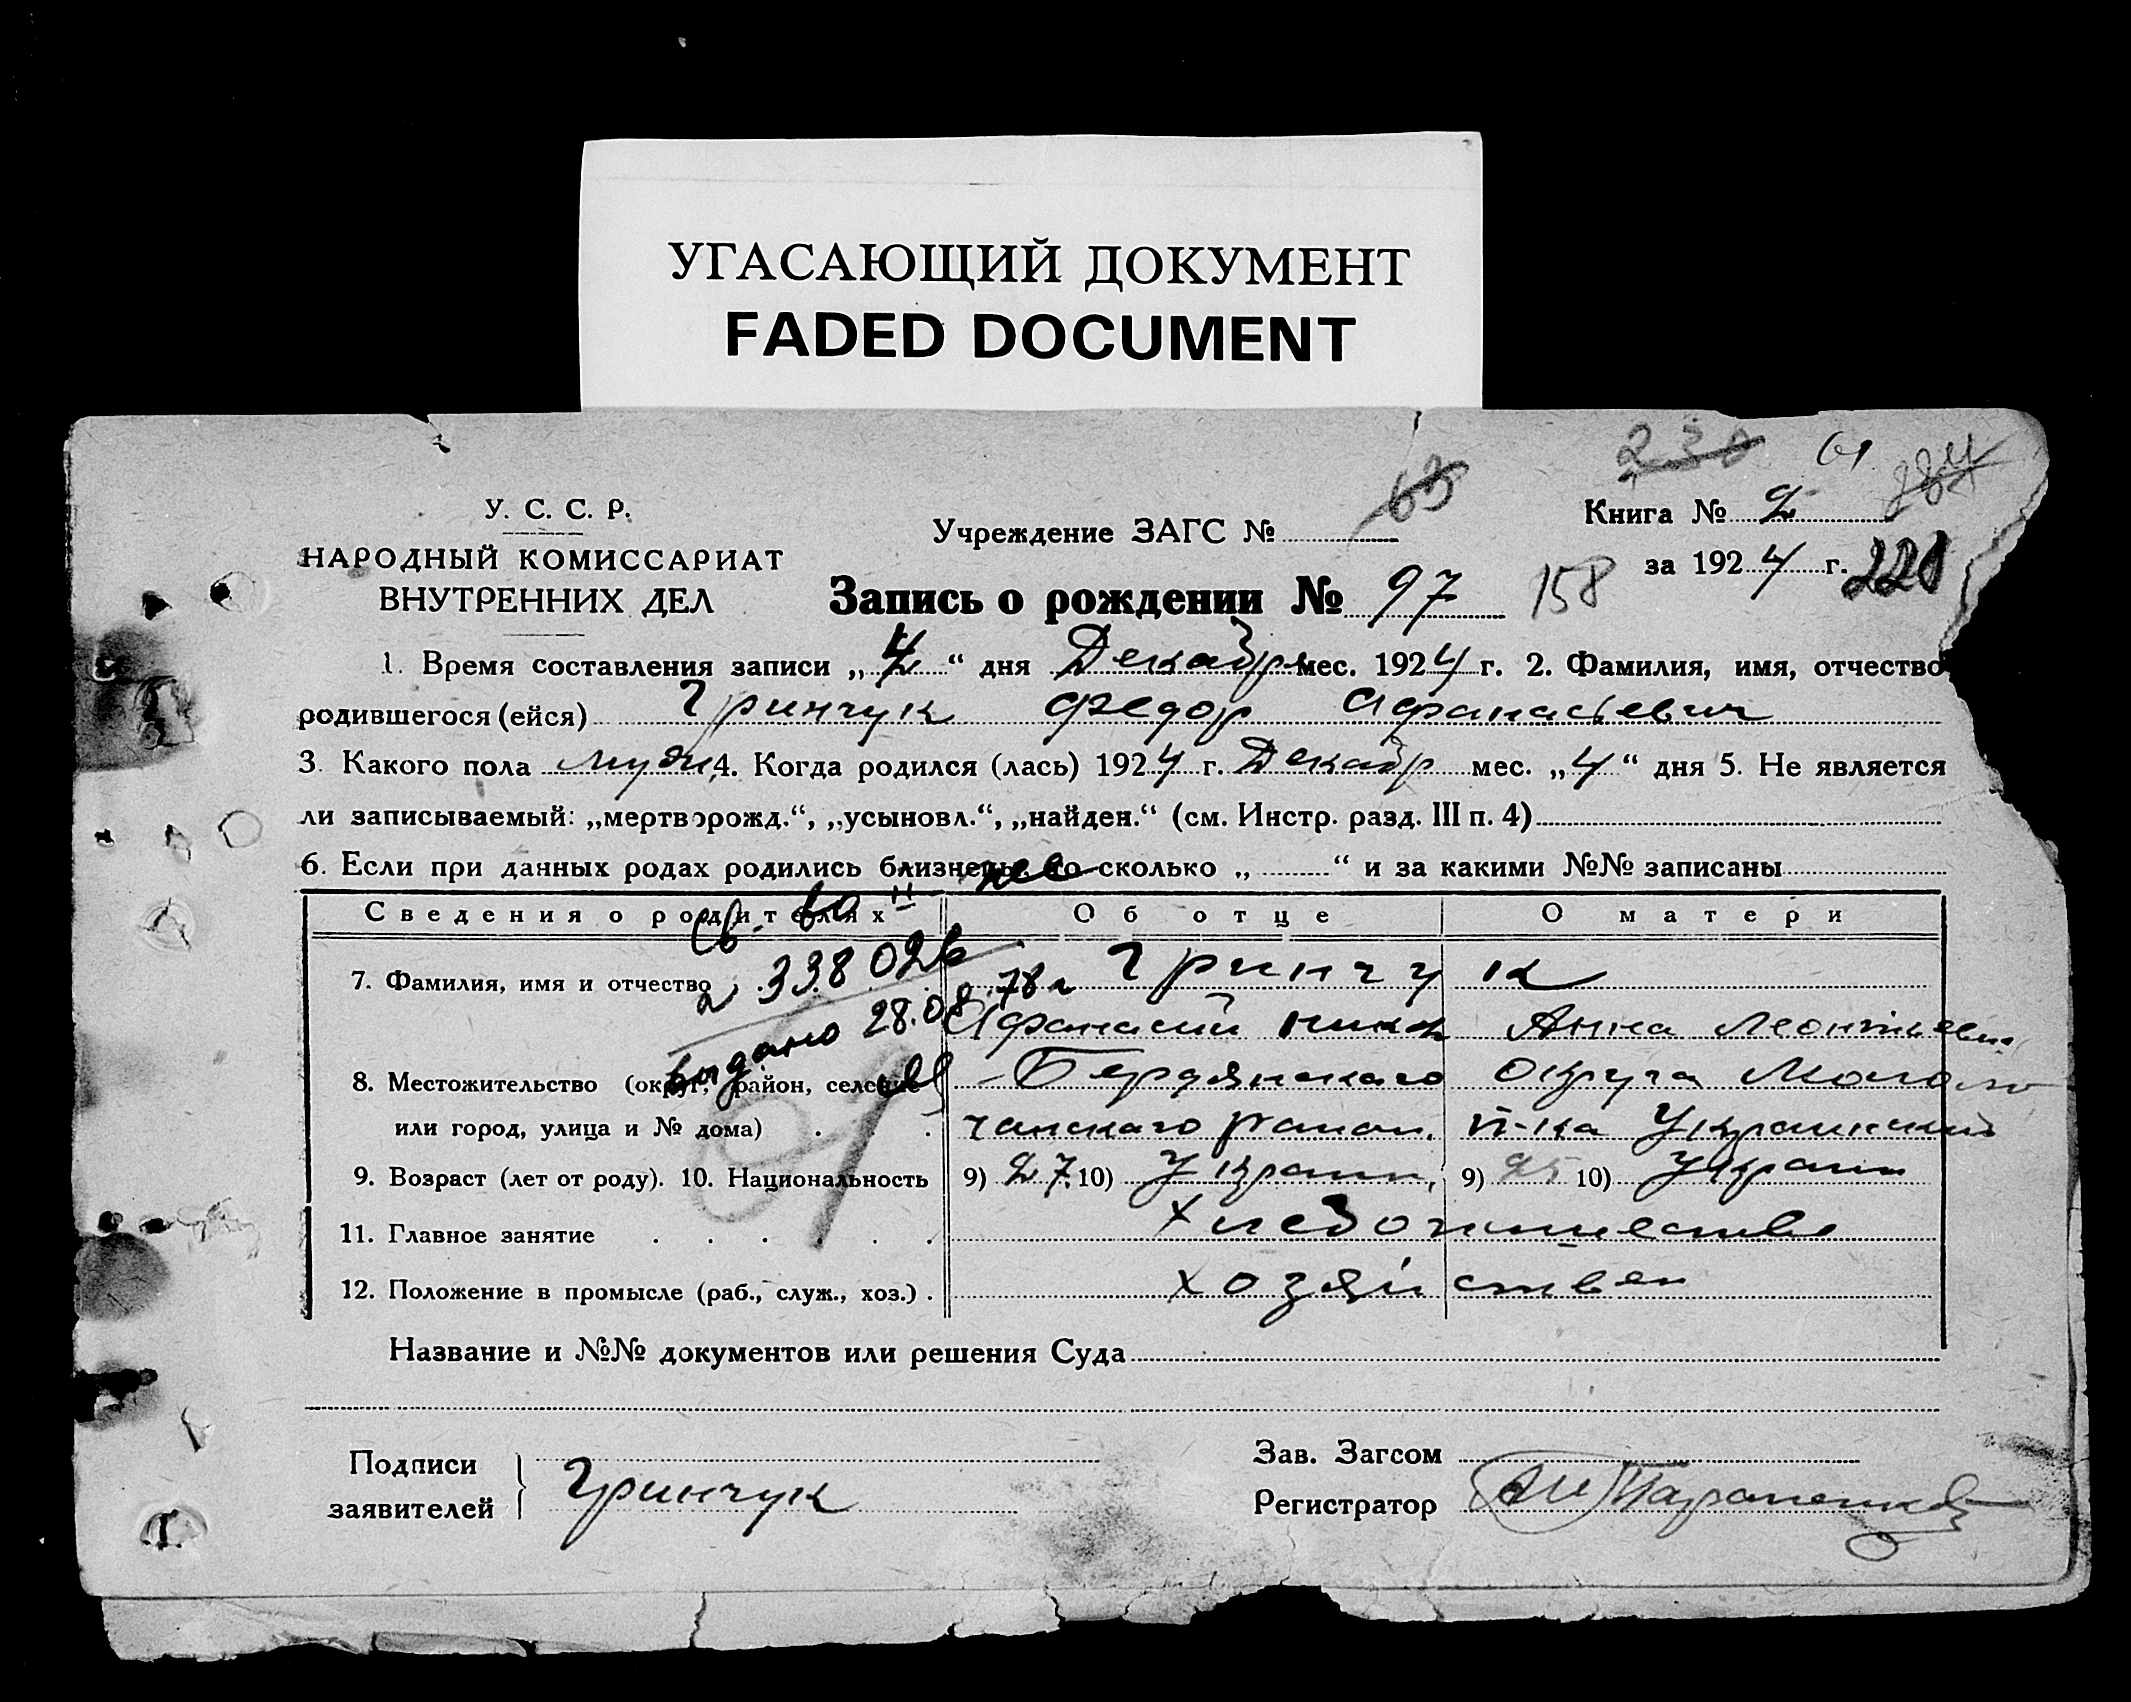 УГАСАЮЩИЙ ДОКУМЕНТ
FADED DOCUMENT
230 61
У. С. С. Р.
НАРОДНЫЙ КОМИССАРИАТ
ВНУТРЕННИХ ДЕЛ
Учреждение ЗАГС №
Книга № 2
за 1924 г. 220
Запись о рождении № 97 158
1. Время составления записи „4“ дня Декабр мес. 1924 г. 2. Фамилия, имя, отчество
родившегося (ейся) Гринчук Федор Афанасьевич
3. Какого пола мужи 4. Когда родился (лась) 1924 г. Декабр мес. „4“ дня 5. Не является
ли записываемый: „мертворожд.“, „усыновл.“, „найден.“ (см. Инстр. разд. III п. 4)
6. Если при данных родах родились близнецы, то сколько „ “ и за какими №№ записаны
Сведения о родителях Об отце О матери
Св-во II
7. Фамилия, имя и отчество 338026 Гринчук
выдано 28.08.78 г
Афанасий Анна Леонтьевн
8. Местожительство (округ, район, селение Бердянскаго округа Моло
или город, улица и № дома) чанскаго район.
9. Возраст (лет от роду). 10. Национальность 9) 27 10) Украин, 9) 25 10) Украин
11. Главное занятие Хлебопашество
12. Положение в промысле (раб., служ., хоз.) хозяйствен
Название и №№ документов или решения Суда
Подписи
заявителей Гринчук
Зав. Загсом
Регистратор